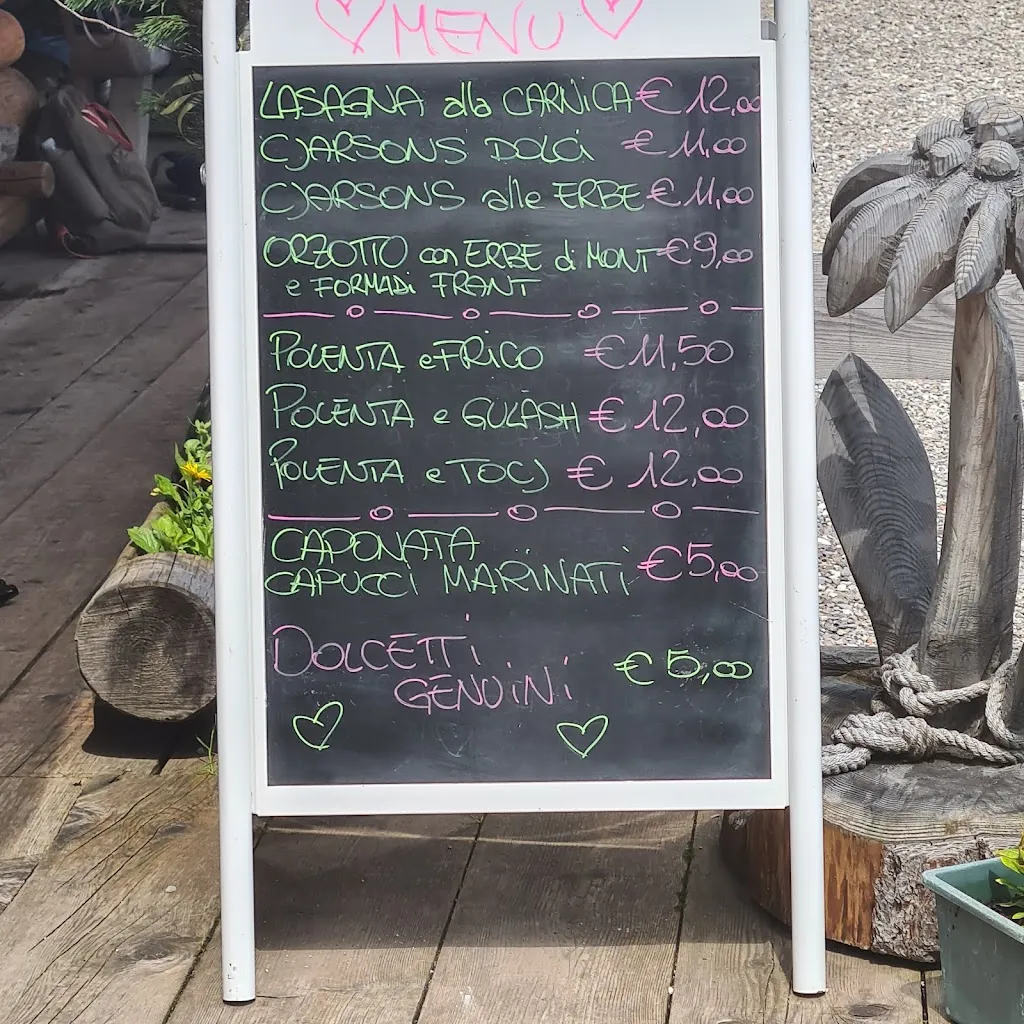 MENU
LASAGNA alla CARNICA € 12,00
CJARSONS DOLCI € 11,00
CJARSONS alle ERBE € 11,00
ORZOTTO con ERBE di MONT € 9,00
e FORMADI FRANT
POLENTA e FRICO € 11,50
POLENTA e GULASH € 12,00
POLENTA e TOCJ € 12,00
CAPONATA
CAPUCCI MARINATI € 5,00
DOLCETTI
GENUINI € 5,00